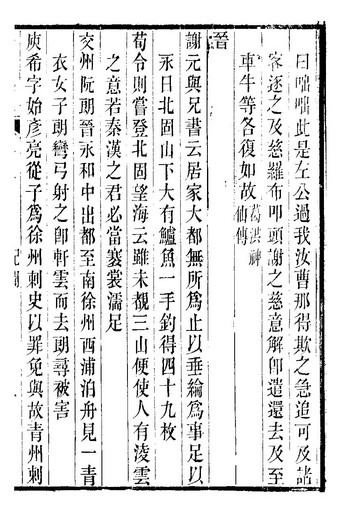 曰咄咄此是左公過我汝曹那得欺之急追可及諸
客逐之及慈羅布叩頭謝之慈意解卽遣還去及至
車牛等各復如故葛洪神仙傳
晉
謝元與兄書云居家大都無所爲止以垂綸爲事足以
永日北固山下大有鱸魚一手釣得四十九枚
荀令則嘗登北固望海云雖未覩三山便使人有淩雲
之意若秦漢之君必當褰裳濡足
交州阮朗晉永和中出都至南徐州西浦泊舟見一青
衣女子朗彎弓射之卽軒雲而去朗尋被害
庾希字始彥亮從子爲徐州刺史以罪免與故青州刺